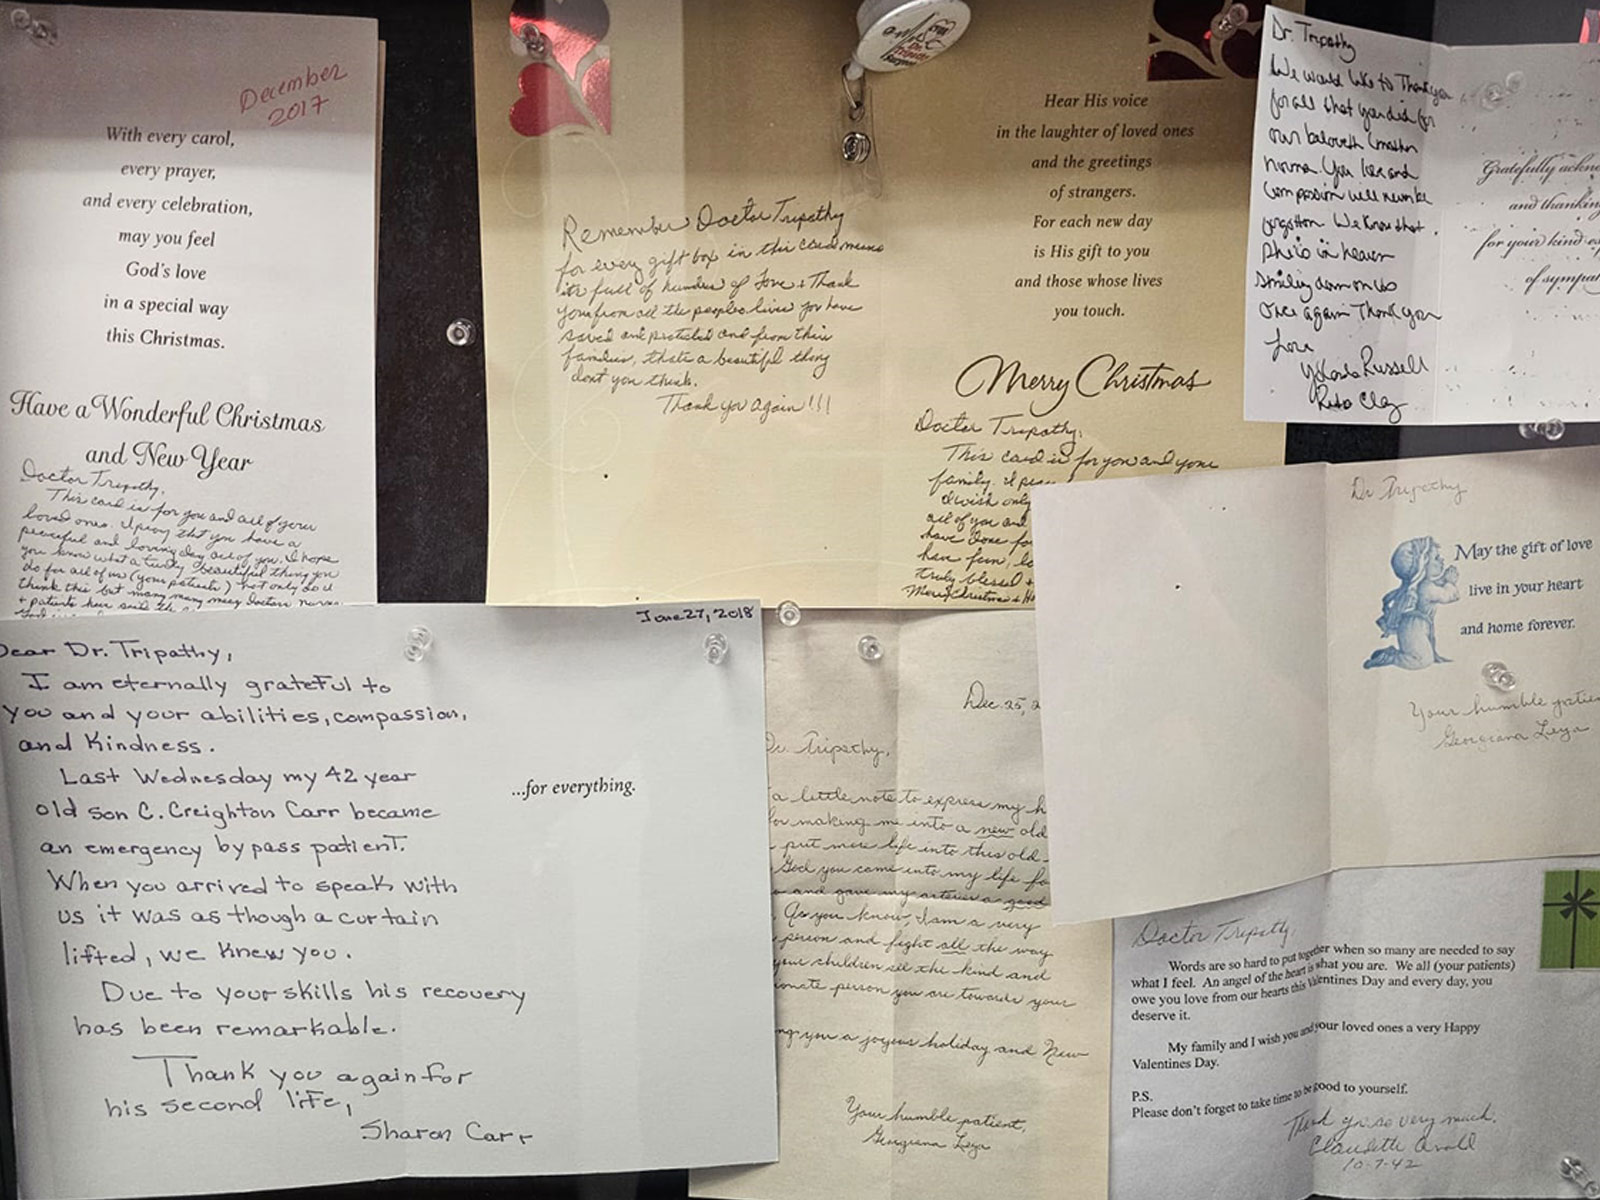 December
2017
With every carol,
every prayer,
and every celebration,
may you feel
God's love
in a special way
this Christmas.
Have a Wonderful Christmas
and New Year
Doctor Tripathy,
This card is for you and all of your
loved ones. I pray that you have a
peaceful and loving day all of you. I hope
you know what a truly beautiful thing you
do for all of us (your patients) not only do I
think this but many many many doctors nurses
+ patients have said
Remember Doctor Tripathy
for every gift box in this card means
its full of hundres of love + Thank
yous from all the peoples lives you have
saved and protected and from their
families, thats a beautiful thing
dont you think.
Thank you again!!!
Hear His voice
in the laughter of loved ones
and the greetings
of strangers.
For each new day
is His gift to you
and those whose lives
you touch.
Merry Christmas
Doctor Tripathy,
This card is for you and your
family. I
I wish only
all of you and
have done fo
have fun,
truly blessed +
Merry Christmas +
Dr. Tripathy
We would like to Thank you
for all that you did for
our beloveth mother
Norma. You love and
Compassion will never be
forgotton. We know that
She's in heaven
Smiling down on us
Once again Thank you
Love
Russell
Rita Clay
Gratefully ackno
and thanking
for your kind ex
of sympat
Dr Tripathy
May the gift of love
live in your heart
and home forever.
Your humble patien
Georgiana Leya
June 27, 2018
Dear Dr. Tripathy,
I am eternally grateful to
you and your abilities, compassion,
and kindness.
Last Wednesday my 42 year
old son C. Creighton Carr became
an emergency bypass patient.
When you arrived to speak with
us it was as though a curtain
lifted, we knew you.
Due to your skills his recovery
has been remarkable.
Thank you again for
his second life,
Sharon Carr
...for everything.
Dec. 25, 2
Dr. Tripathy,
a little note to express my h
for making me into a new old
put more life into this old
God you came into my life fo
and gave my arteries a good
As you know, I am a very
person and fight all the way
your children see the kind and
onate person you are towards your
ng you a joyous holiday and New
Your humble patient,
Georgiana Leya
Doctor Tripathy,
Words are so hard to put together when so many are needed to say
what I feel. An angel of the heart is what you are. We all (your patients)
owe you love from our hearts this Valentines Day and every day, you
deserve it.
My family and I wish you and your loved ones a very Happy
Valentines Day.
P.S.
Please don't forget to take time to be good to yourself.
Thank you so very much.
Claudette
10-7-42